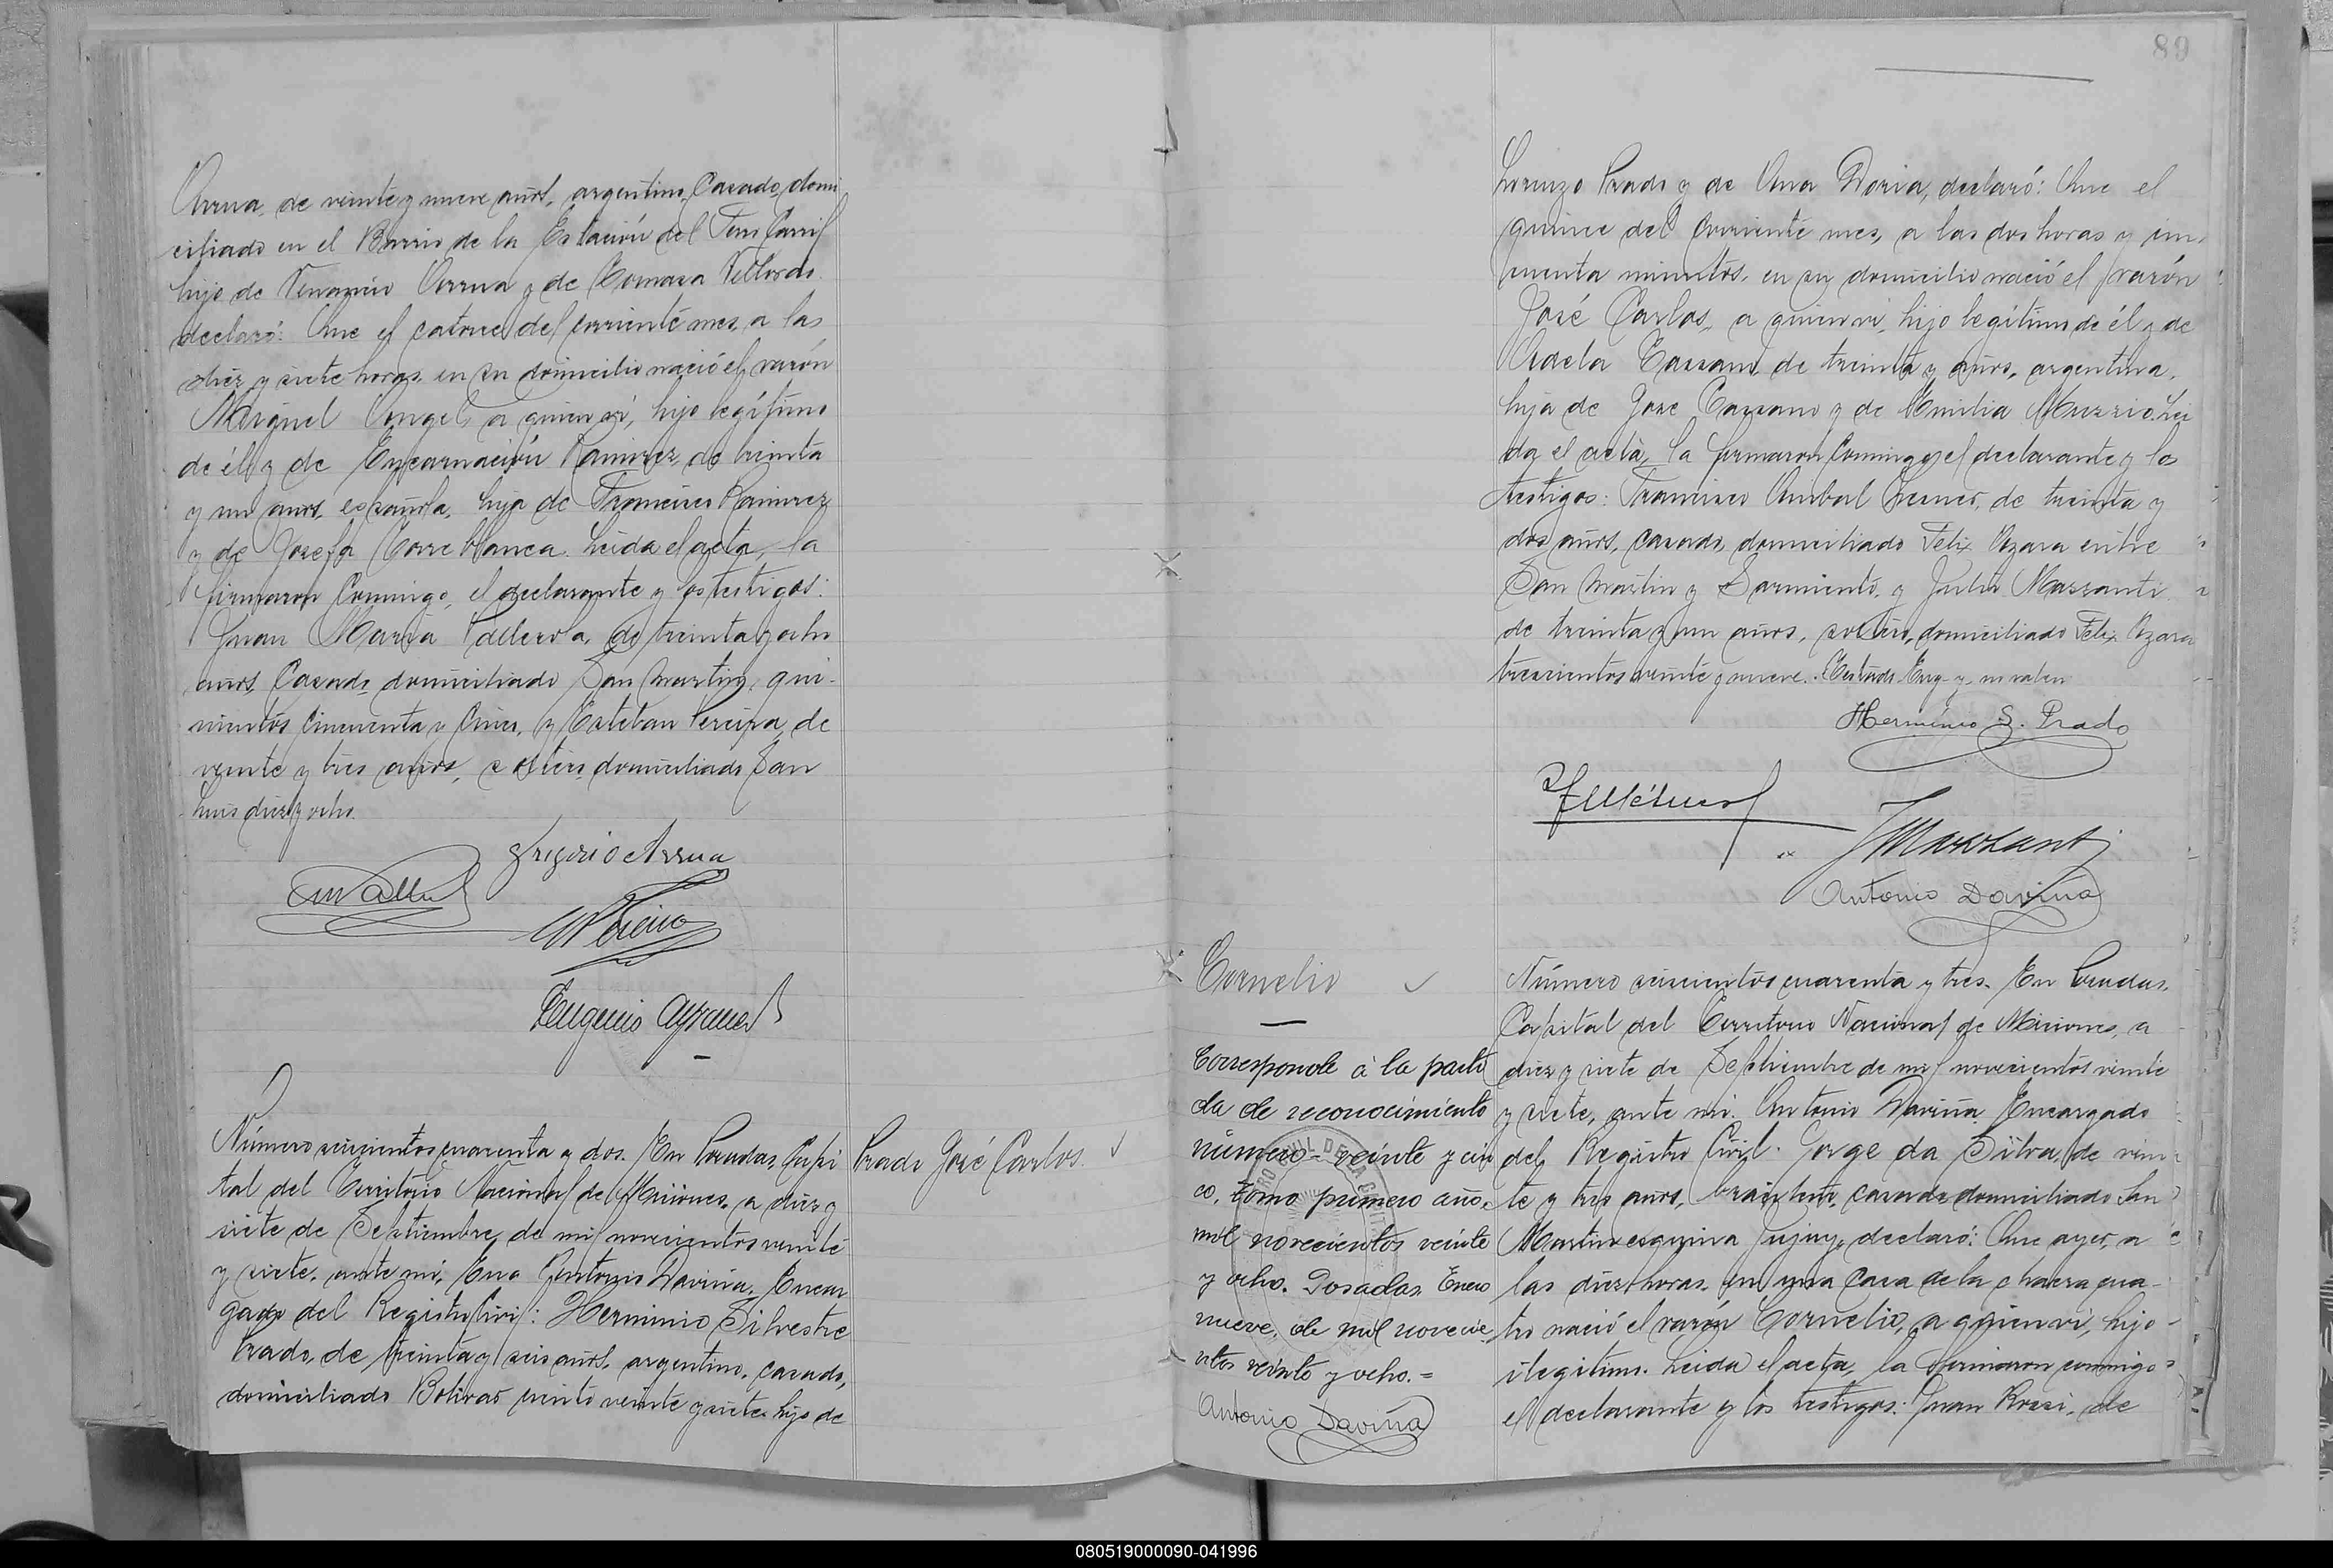 Arrua, de veinte y nueve años, argentino, Casado, domi
ciliado en el Barrio de la Estación del Ferro Carril
hijo de Venancio Arrua y de Tomasa
declaró: Que el catorce del corriente mes, a las
diez y siete horas, en su domicilio nació el varón
Miguel Angel, a quien ví, hijo legítimo
de él y de Encarnación Ramirez, de treinta
y un años, española, hija de Francisco Ramirez
y de Josefa Torreblanca. Leida el acta, la
firmaron Conmigo, el declarante y los testigos:
Juan Maria de treinta y ocho
años, Casado, domiciliado San Martin, qui-
nientos Cincuenta y Cinco, y Esteban Pereira, de
veinte y tres años, soltero, domiciliado San
Luis diez y ocho.
Gregorio Arrua
Eugenio
Número seiscientos cuarenta y dos. En Posadas, Capi
tal del Territorio Nacional de Misiones, a diez y
siete de Septiembre de mil novecientos veinte
y siete, ante mí, Antonio Daviña, Encar
gado del Registro Civil: Herminio Silvestre
Prado, de treinta y seis años, argentino, casado,
domiciliado Bolivar ciento veinte y siete, hijo de
Prado José Carlos.
89
Lorenzo Prado y de Ana Doria, declaró: Que el
quince del corriente mes, a las dos horas y cin-
cuenta minutos, en su domicilio nació el varón
José Carlos, a quien ví, hijo legítimo de él y de
Adela Cassano, de treinta y años, argentina,
hija de José Cassano y de Emilia Muzzio. Lei
da el acta, la firmaron Conmigo, el declarante y los
testigos: Francisco Anibal de treinta y
dos años, casado, domiciliado Felix Azara entre
San Martin y Sarmiento, y Julio Massanti
de treinta y un años, soltero, domiciliado Felix Azara
trescientos veinte y nueve. Testado no valen
Herminio S. Prado
Antonio Daviña
Cornelio
Corresponde à la parti
da de reconocimiento
número - veinte y cin
co, tomo primero año,
mil novecientos veinte
y ocho. Posadas, Enero
nueve, de mil novecie
ntos veinte y ocho.=
Antonio Daviña
Número seiscientos cuarenta y tres. En Posadas,
Capital del Territorio Nacional de Misiones, a
diez y siete de Septiembre de mil novecientos veinte
y siete, ante mí. Antonio Daviña Encargado
del Registro Civil: Jorge da Silva, de vein
te y tres años, brasilero, casado domiciliado San
Martin esquina Jujuy, declaró: Que ayer, a
las diez horas, en una Casa de la chacra cua-
tro nació el varón Cornelio, a quien ví, hijo
ilegitimo. Leida el acta, la firmaron conmigo
el declarante y los testigos: Juan Rossi, de
080519000090-041996